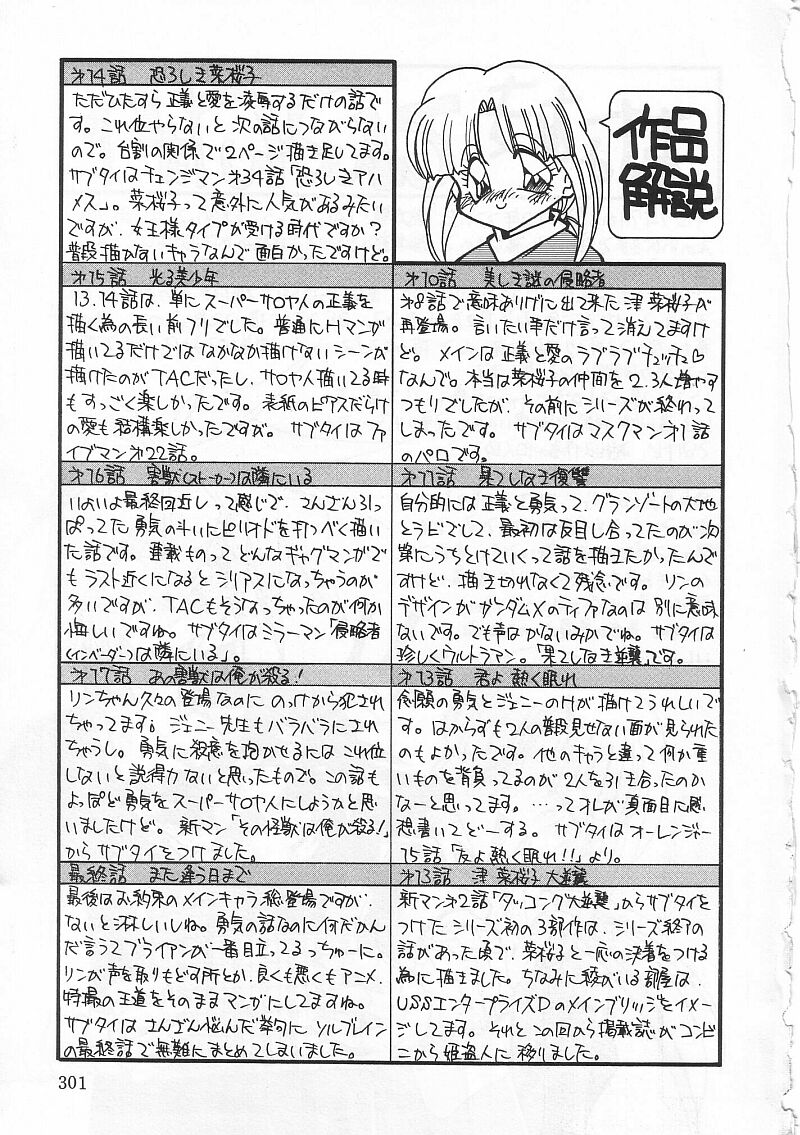 作品
解説
オ10話 美しき謎の侵略者
オ8話で意味ありげに出て来た津菜桜子が
再登場。言いたい事だけ言って消えてますけ
ど。メインは正義と愛のラブラブチュッチュ♡
なんで。本当は菜桜子の仲間を2.3人増やす
つもりでしたが、その前にシリーズが終わって
しまったです。サブタイはマスクマンオ1話
のパロです。
オ11話 果てしなき復讐
自分的には正義と勇気って、グランゾートの大地
とラビでして、最初は反目し合ってたのが次
第にうちとけていくって話を描きたかったんで
すけど、描き切れなくて残念です。リンの
デザインがガンダムXのティファなのは別に意味
ないです。でも声はかないみかでね。サブタイは
珍しくウルトラマン。「果てしなき逆襲」です。
オ13話 君よ熱く眠れ
念願の勇気とジェニーのHが描けてうれしいで
す。はからずも2人の普段見せない面が見られた
のもよかったです。他のキャラと違って何か重
いものを背負ってるのが2人を引き合ったのか
なーと思ってます。…ってオレが真面目に感
想書いてどーする。サブタイはオーレンジャー
15話「友よ熱く眠れ!!」より。
オ13話 津 菜桜子 大逆襲
新マンオ2話「タッコング大逆襲」からサブタイを
つけたシリーズ初の3部作は、シリーズ終了の
話があった頃で、菜桜子と一応の決着をつける
為に描きました。ちなみに彼がいる部屋は、
USSエンタープライズDのメインブリッジをイメー
ジしてます。それとこの回から掲載誌がコンビ
ニから姫盗人に移りました。
オ14話 恐ろしき菜桜子
ただひたすら正義と愛を凌辱するだけの話で
す。これ位やらないと次の話につながらない
ので。台割の関係で2ページ描き足してます。
サブタイはチェンジマンオ34話「恐ろしきアハ
メス」。菜桜子って意外に人気があるみたい
ですが、女王様タイプが受ける時代ですか?
普段描かないキャラなんで面白かったですけど。
オ15話 光る美少年
13.14話は、単にスーパーサロヤ人の正義を
描く為の長い前フリでした。普通にHマンガ
描いてるだけではなかなか描けないシーンが
描けたのがTACだったし、サロヤ人描いてる時
もすっごく楽しかったです。表紙のピアスだらけ
の愛も結構楽しかったですが。サブタイはファ
イブマンオ22話。
オ16話 害獣(ストーカー)は隣にいる
いよいよ最終回近しって感じで、さんざん引っ
ぱってた勇気の斗いにピリオドを打つべく描い
た話です。連載ものってどんなギャグマンガで
もラスト近くになるとシリアスになっちゃうのが
多いですが、TACもそうなっちゃったのが何か
悔しいですね。サブタイはミラーマン「侵略者
(インベーダー)は隣にいる」。
オ17話 あの害獣は俺が殺る!
リンちゃん久々の登場なのにのっけから犯され
ちゃってます。ジェニー先生もバラバラにされ
ちゃうし。勇気に殺意を抱かせるにはこれ位
しないと説得力ないと思ったもので。この話も
よっぽど勇気をスーパーサロヤ人にしようかと思
いましたけど。新マン「その怪獣は俺が殺る!」
からサブタイをつけました。
最終話 また逢う日まで
最後はお約束のメインキャラ総登場ですが、
ないと淋しいしね。勇気の話なのに何だかん
だ言うてブライアンが一番目立ってるっちゅーに。
リンが声を取りもどす所とか、良くも悪くもアニメ、
特撮の王道をそのままマンガにしてますね。
サブタイはさんざん悩んだ挙句にソルブレイン
の最終話で無難にまとめてしまいました。
301